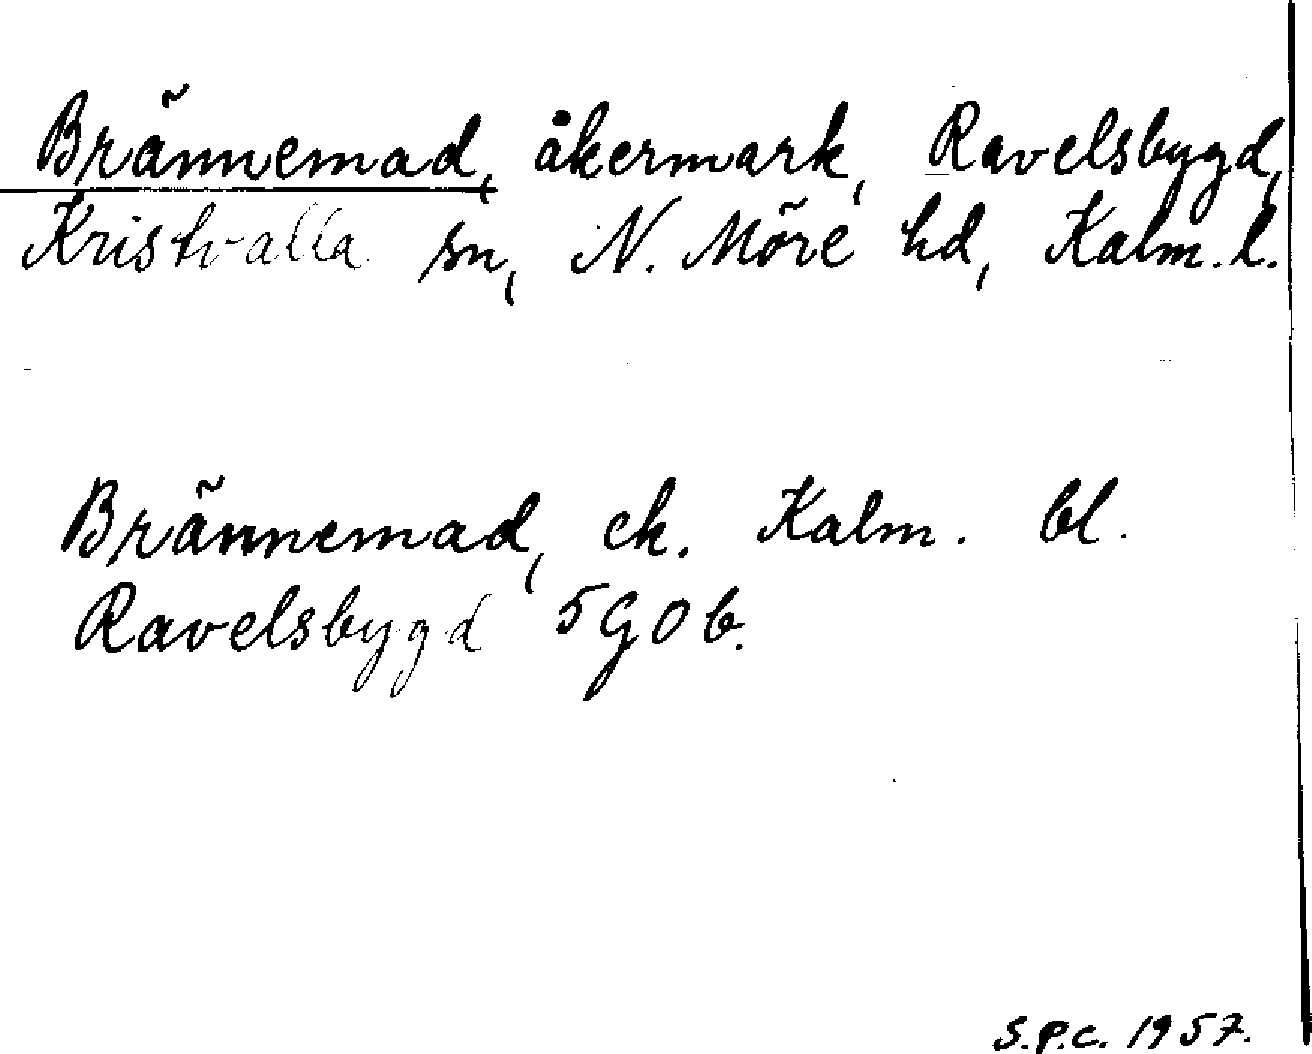 Brännemad, åkermark, Ravelsbygd,
Kristvalla sn, N. Möre hd, Kalm. l.
Brännemad, ek. Kalm. bl.
Ravelsbygd 5 G 0 b.
S.P.C. 1957.